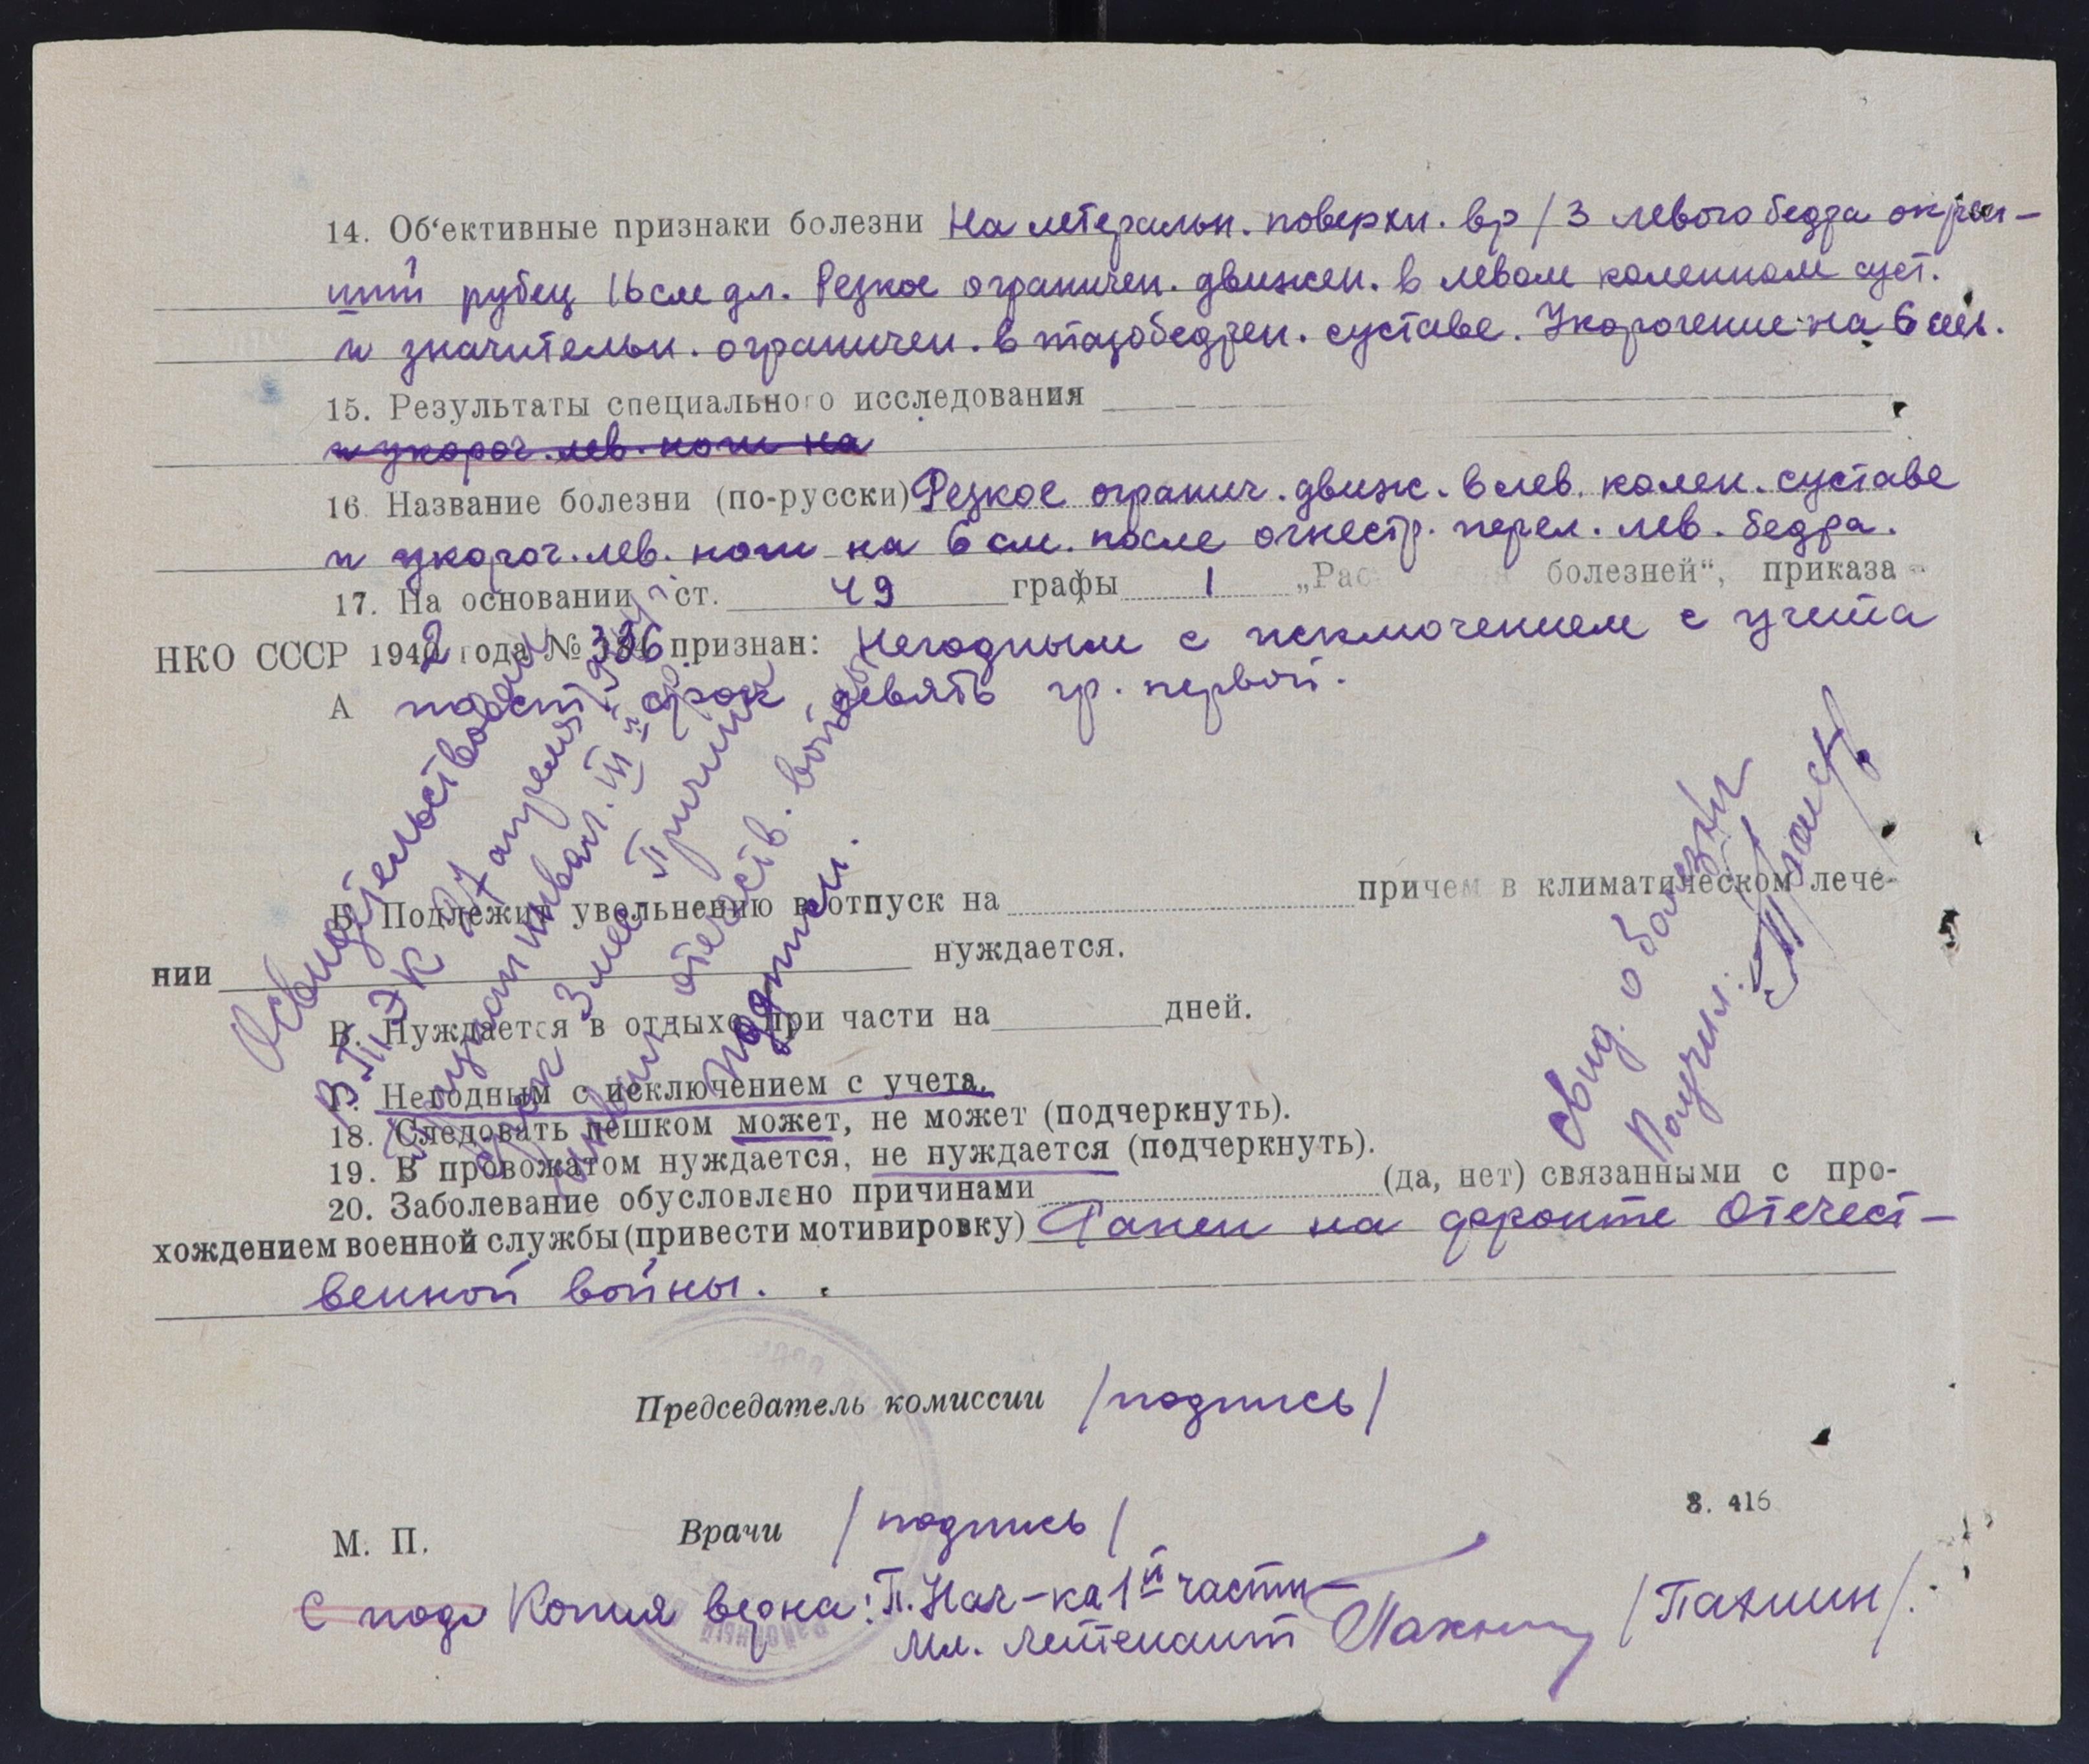 14. Об‘ективные признаки болезни На летеральн. поверхн. вр/3 левого бедра
рубец 16 см дл. Резкое ограничен. движен. в левом коленном суст.
и значительн. ограничен. в тазобедрен. суставе. Укорочение на 6 см.
15. Результаты специального исследования
и укороч. лев. ноги на
16. Название болезни (по-русски) Резкое огранич. движ. в лев. колен. суставе
и укороч. лев. ноги на 6 см. после огнестр. перел. лев. бедра.
17. На основании ст. 49 графы 1 „Рас болезней“, приказа
НКО СССР 1942 года № 336 признан: Негодным с исключением с учета
А по ст. сорок девять гр. первой.
Освидетельствован
В ТЭК 27 апреля
инвал. III й гр.
срок 3 мес Причина
инвал отечеств. войны
подписи.
Свид. о болезни
Получил:
Б. Подлежит увольнению в отпуск на причем в климатическом лече-
нии нуждается.
В. Нуждается в отдыхе при части на дней.
Г. Негодным с исключением с учета.
18. Следовать пешком может, не может (подчеркнуть).
19. В провожатом нуждается, не нуждается (подчеркнуть).
20. Заболевание обусловлено причинами (да, нет) связанными с про-
хождением военной службы (привести мотивировку) Ранен на фронте Отечест-
венной войны.
Председатель комиссии /подпись/
З. 416
М. П. Врачи /подпись/
С под Копия верна: П. Нач-ка 1 й части
Мл. лейтенант /Пахнин/.